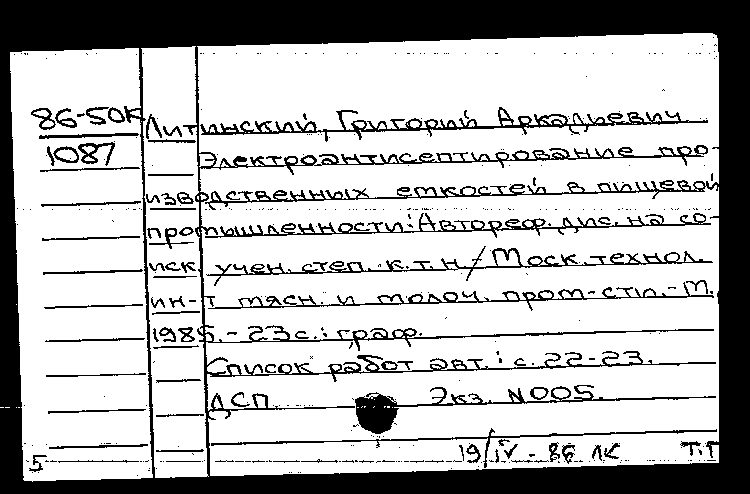 86-50К Литинский, Григорий Аркадьевич
1087 Электроантисептирование про-
изводственных емкостей в пищевой
промышленности: Автореф. дис. на со-
иск. учен. степ. к.т.н / Моск. технол.
ин-т мясн. и молоч. пром-сти. - М.,
1985. - 23 с.: граф.
Список работ авт.: с. 22-23.
ДСП Экз. N005.
19/IV - 86 ЛК Т.Т
5